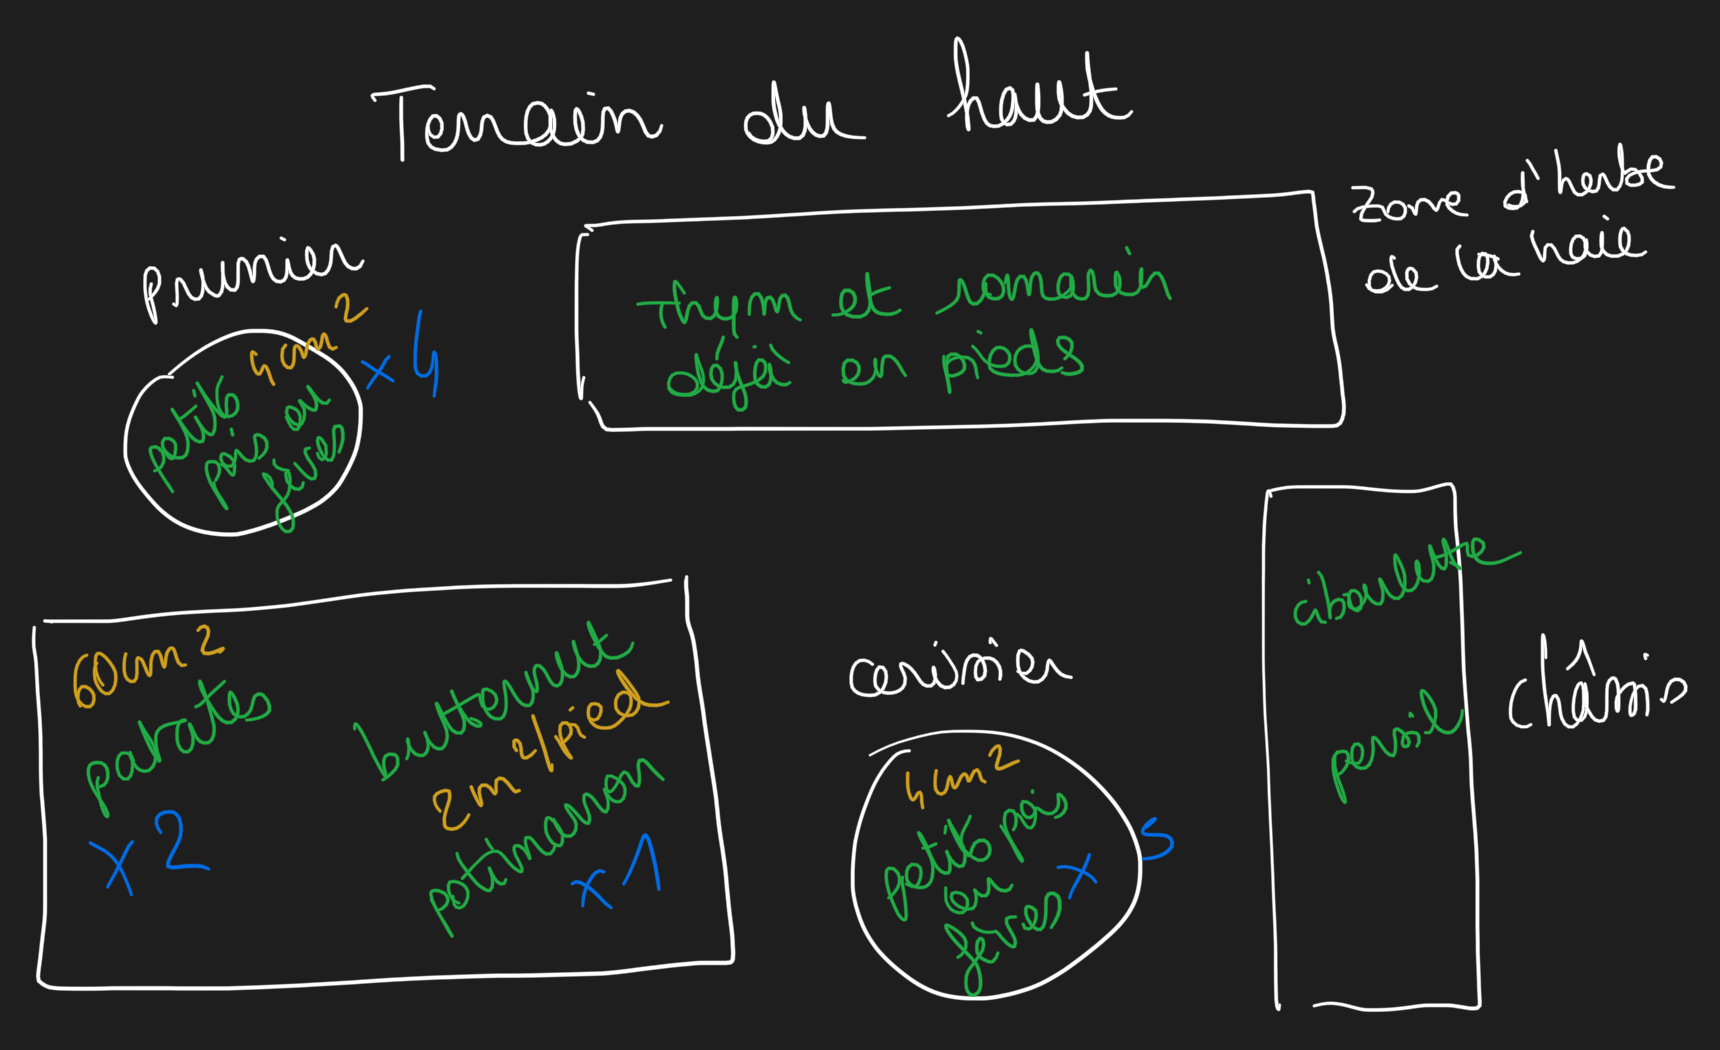 Terrain du haut
zone d'herbe
de la haie
prunier
4cm²
x4
petits
pois ou
fèves
Thym et romarin
déjà en pieds
60cm²
patates
x2
butternut
2m²/pied
potimarron
x1
cerisier
4cm²
petits pois
ou
fèves
x5
ciboulette
persil
châssis